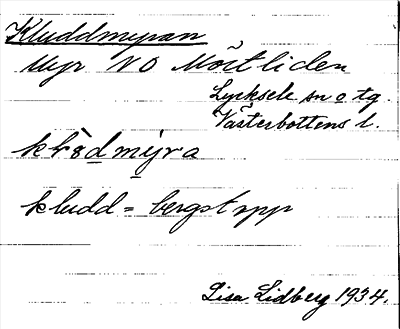 Kluddmyran
Myr NO Mörtliden
Lycksele sn o tg.
Västerbottens l.
kludd = bergstopp
Lisa Lidberg 1934.